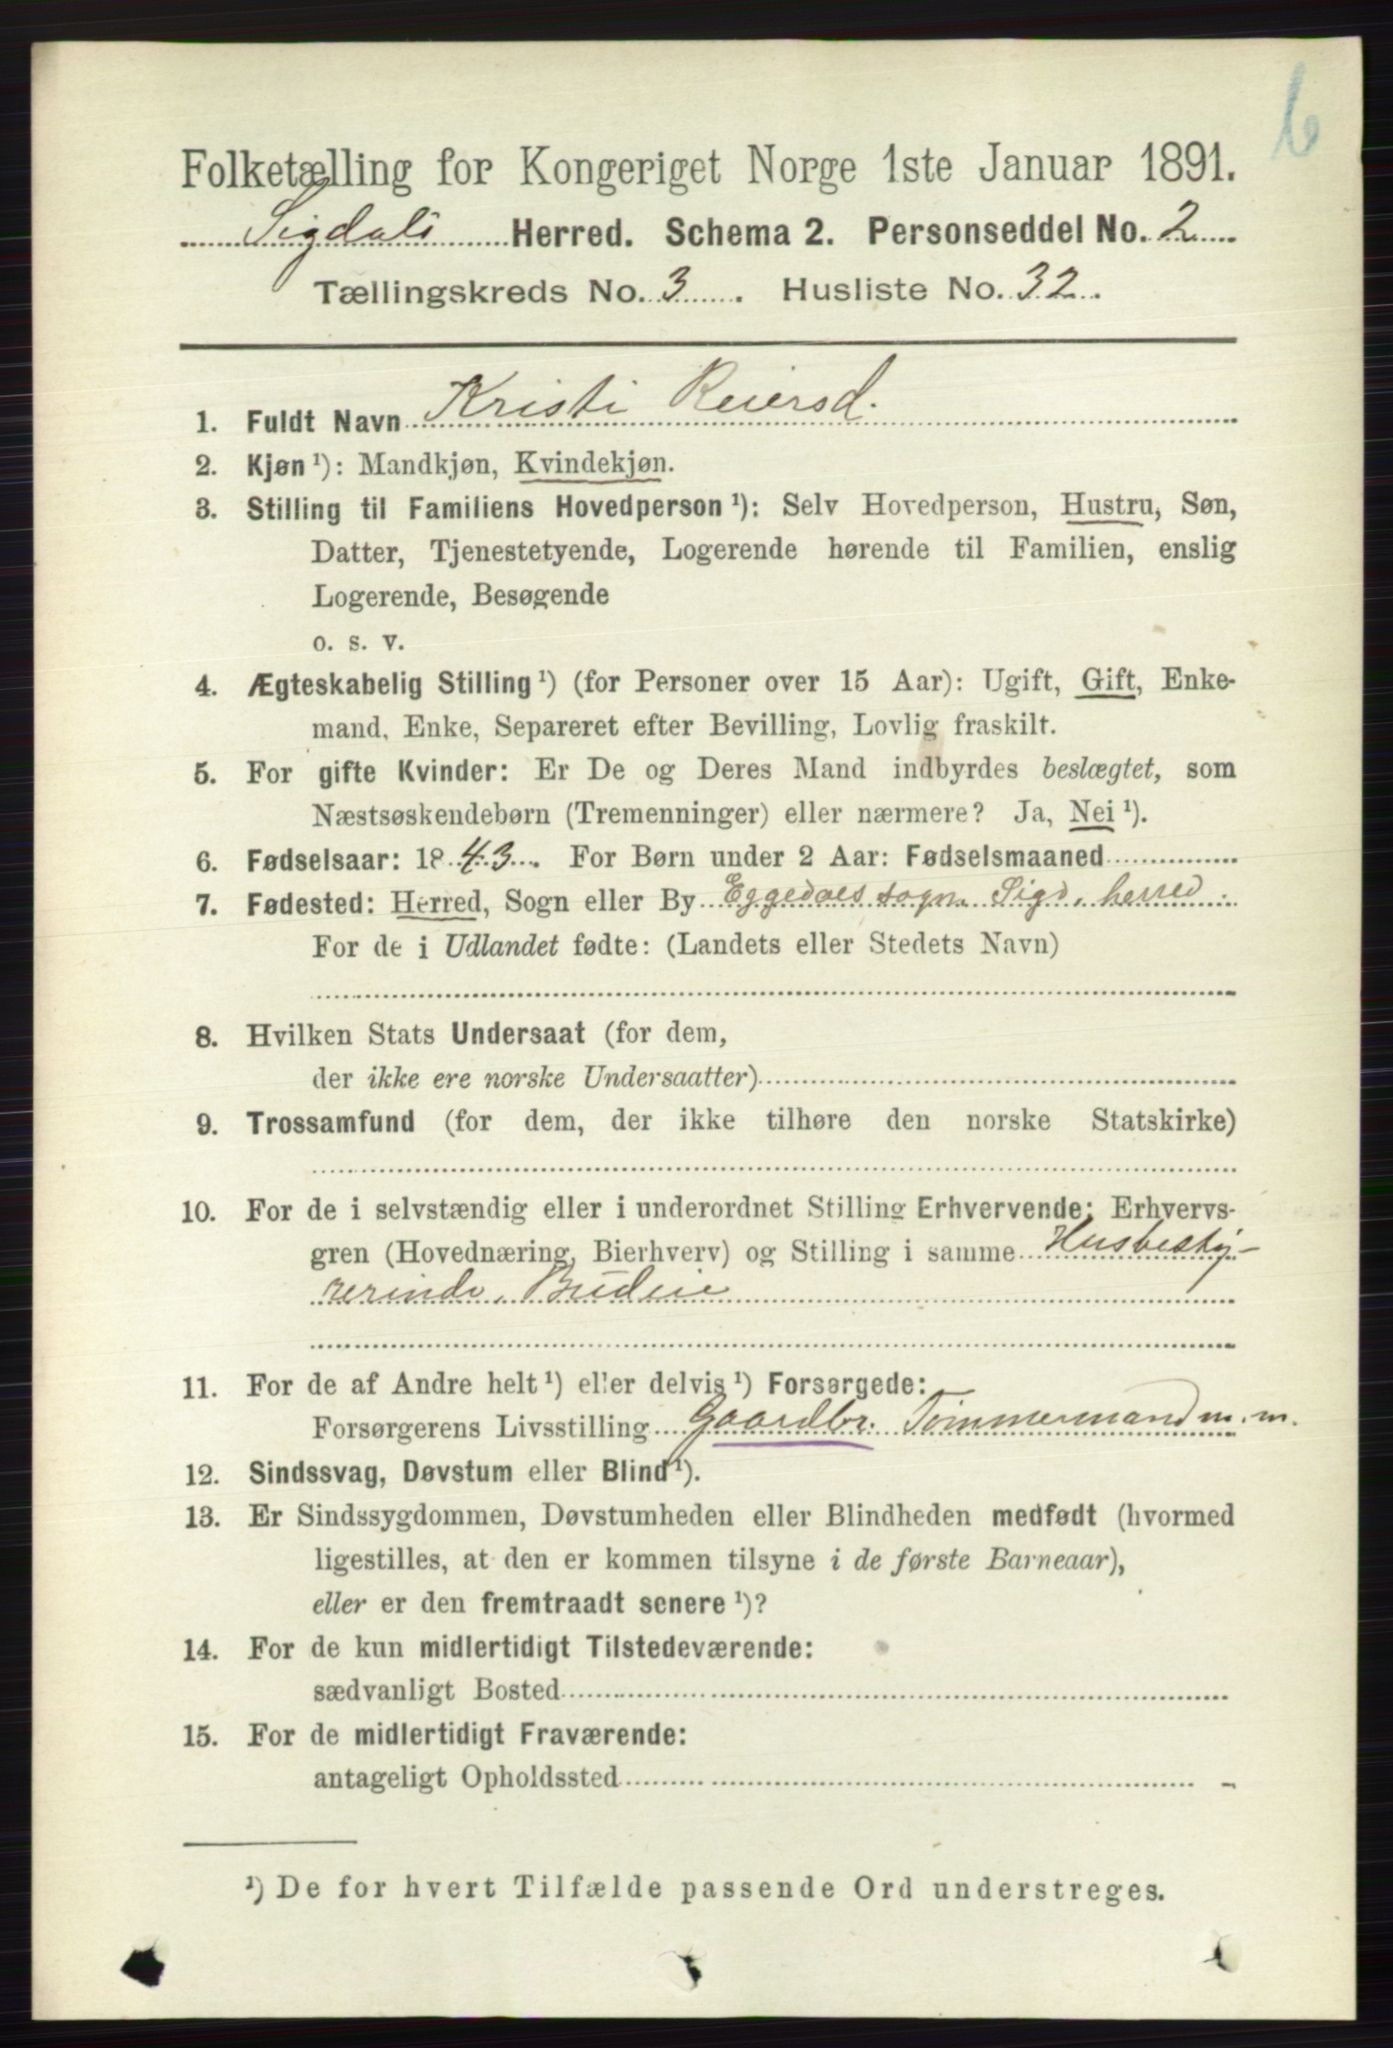 6
Folketælling for Kongeriget Norge 1ste Januar 1891.
Sigdals Herred. Schema 2. Personseddel No. 2
Tællingskreds No. 3. Husliste No. 32.
1. Fuldt Navn Kristi Reiersd.
2. Kjøn ¹): Mandkjøn, Kvindekjøn.
3. Stilling til Familiens Hovedperson ¹): Selv Hovedperson, Hustru, Søn,
Datter, Tjenestetyende, Logerende hørende til Familien, enslig
Logerende, Besøgende
o. s. v.
4. Ægteskabelig Stilling ¹) (for Personer over 15 Aar): Ugift, Gift, Enke-
mand, Enke, Separeret efter Bevilling, Lovlig fraskilt.
5. For gifte Kvinder: Er De og Deres Mand indbyrdes beslægtet, som
Næstsøskendebørn (Tremenninger) eller nærmere? Ja, Nei ¹).
6. Fødselsaar: 1843. For Børn under 2 Aar: Fødselsmaaned
7. Fødested: Herred, Sogn eller By Eggedals sogn Sigd. herred.
For de i Udlandet fødte: (Landets eller Stedets Navn)
8. Hvilken Stats Undersaat (for dem,
der ikke ere norske Undersaatter)
9. Trossamfund (for dem, der ikke tilhøre den norske Statskirke)
10. For de i selvstændig eller i underordnet Stilling Erhvervende: Erhvervs-
gren (Hovednæring, Bierhverv) og Stilling i samme Husbesty-
rerinde, Budeie
11. For de af Andre helt ¹) eller delvis ¹) Forsørgede:
Forsørgerens Livsstilling Gaardbr. Tømmermand m. m.
12. Sindssvag, Døvstum eller Blind ¹).
13. Er Sindssygdommen, Døvstumheden eller Blindheden medfødt (hvormed
ligestilles, at den er kommen tilsyne i de første Barneaar),
eller er den fremtraadt senere ¹)?
14. For de kun midlertidigt Tilstedeværende:
sædvanligt Bosted
15. For de midlertidigt Fraværende:
antageligt Opholdssted
¹) De for hvert Tilfælde passende Ord understreges.